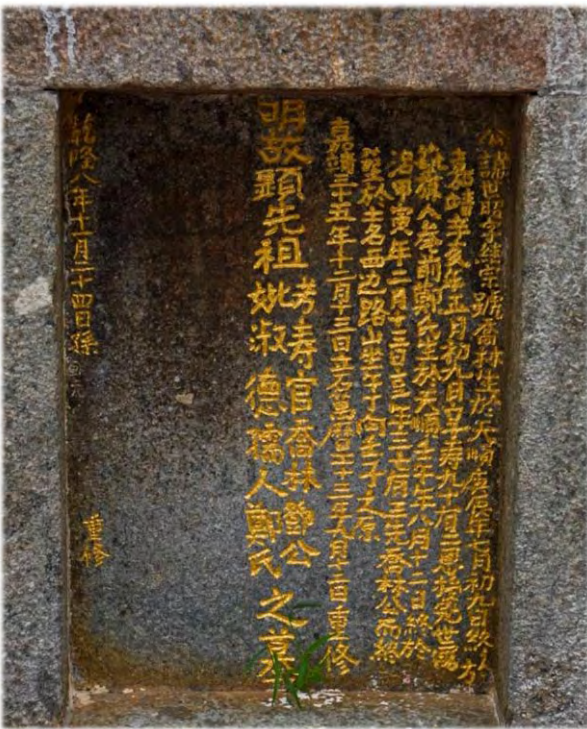 公諱世昭字継宗號喬林生於天順庚辰年七月初九日終
嘉靖辛亥年正月初九日享寿九十有二恩授冠世
孺人考前鄭氏生於天順壬午年八月十二日終於
嘉靖甲寅年二月十三日
塟於土名西边路山坐午向子之原
嘉靖三十五年十二月十三日立石萬曆二十三年九月十二日重修
明故顕先祖
考寿官喬林鄧公
妣淑德孺人鄭氏
之墓
乾隆八年十一月二十四日孫
重修